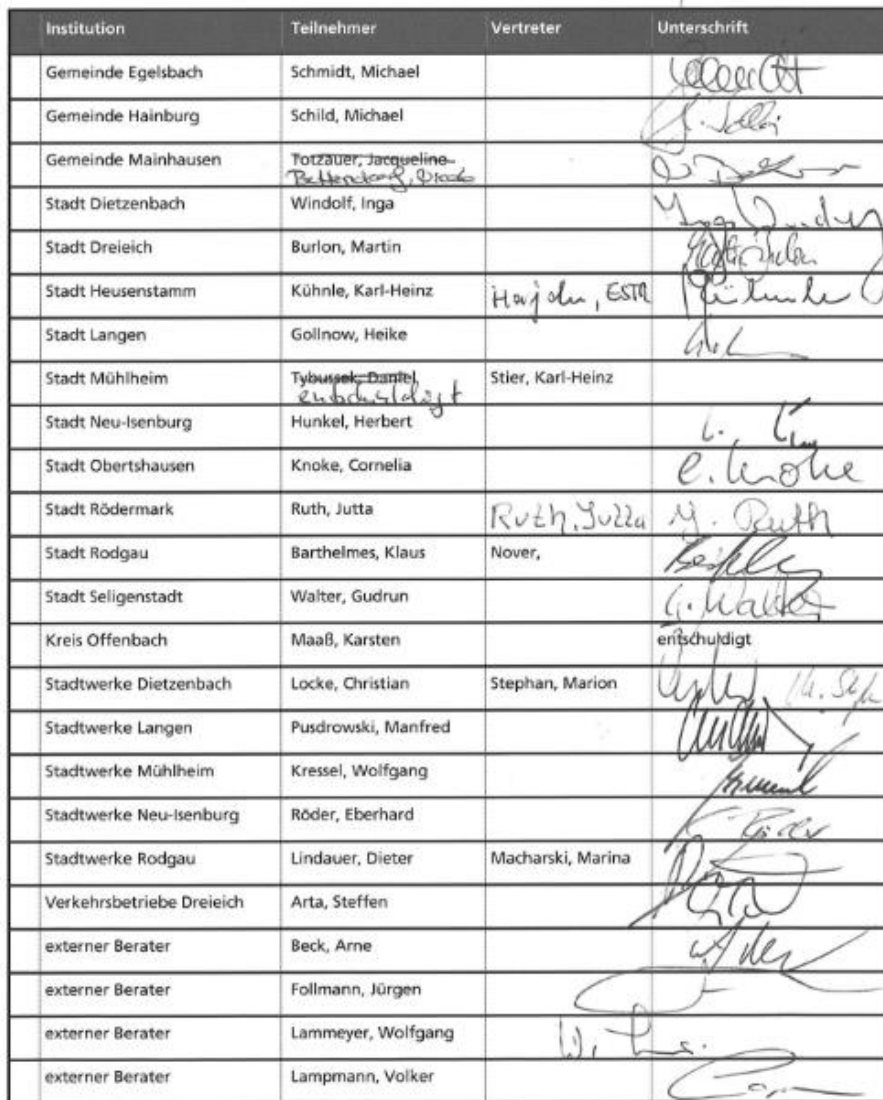 Institution Teilnehmer Vertreter Unterschrift
Gemeinde Egelsbach Schmidt, Michael
Gemeinde Hainburg Schild, Michael
Gemeinde Mainhausen Totzauer, Jacqueline
Stadt Dietzenbach Windolf, Inga
Stadt Dreieich Burlon, Martin
Stadt Heusenstamm Kühnle, Karl-Heinz ESTR
Stadt Langen Gollnow, Heike
Stadt Mühlheim Tybussek, Daniel, Stier, Karl-Heinz
entschuldigt
Stadt Neu-Isenburg Hunkel, Herbert
Stadt Obertshausen Knoke, Cornelia C. Knoke
Stadt Rödermark Ruth, Jutta Ruth, Jutta J. Ruth
Stadt Rodgau Barthelmes, Klaus Nover,
Stadt Seligenstadt Walter, Gudrun G. Walter
Kreis Offenbach Maaß, Karsten entschuldigt
Stadtwerke Dietzenbach Locke, Christian Stephan, Marion
Stadtwerke Langen Pusdrowski, Manfred
Stadtwerke Mühlheim Kressel, Wolfgang
Stadtwerke Neu-Isenburg Röder, Eberhard
Stadtwerke Rodgau Lindauer, Dieter Macharski, Marina
Verkehrsbetriebe Dreieich Arta, Steffen
externer Berater Beck, Arne
externer Berater Follmann, Jürgen
externer Berater Lammeyer, Wolfgang
externer Berater Lampmann, Volker